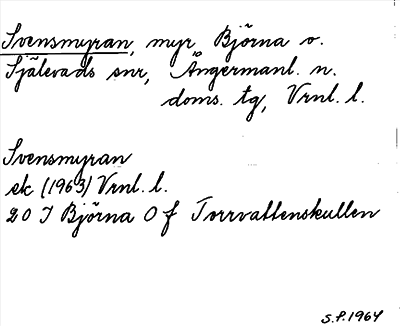 Svensmyran, myr Björna o.
Själevads snr, Ångermanl. n.
doms. tg, Vrnl. l.
Svensmyran
ek (1963) Vrnl. l.
20 I Björna O f Torrvattenskullen
S.P. 1964